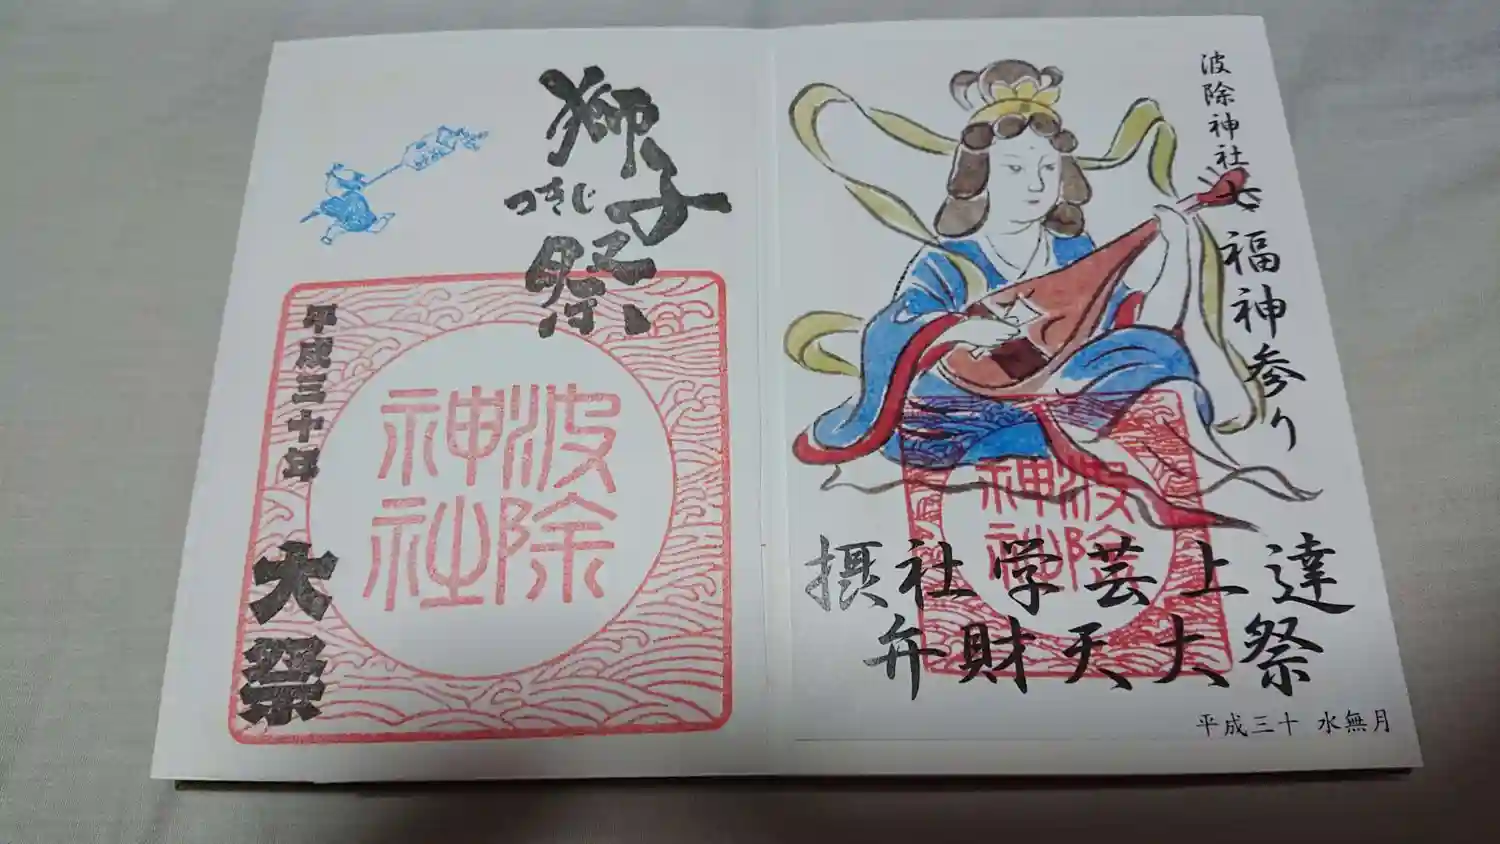 波除神社
七福神参り
波除
神社
摂社学芸上達
弁財天大祭
平成三十 水無月
獅子祭
つきじ
平成三十年
大祭
波除
神社